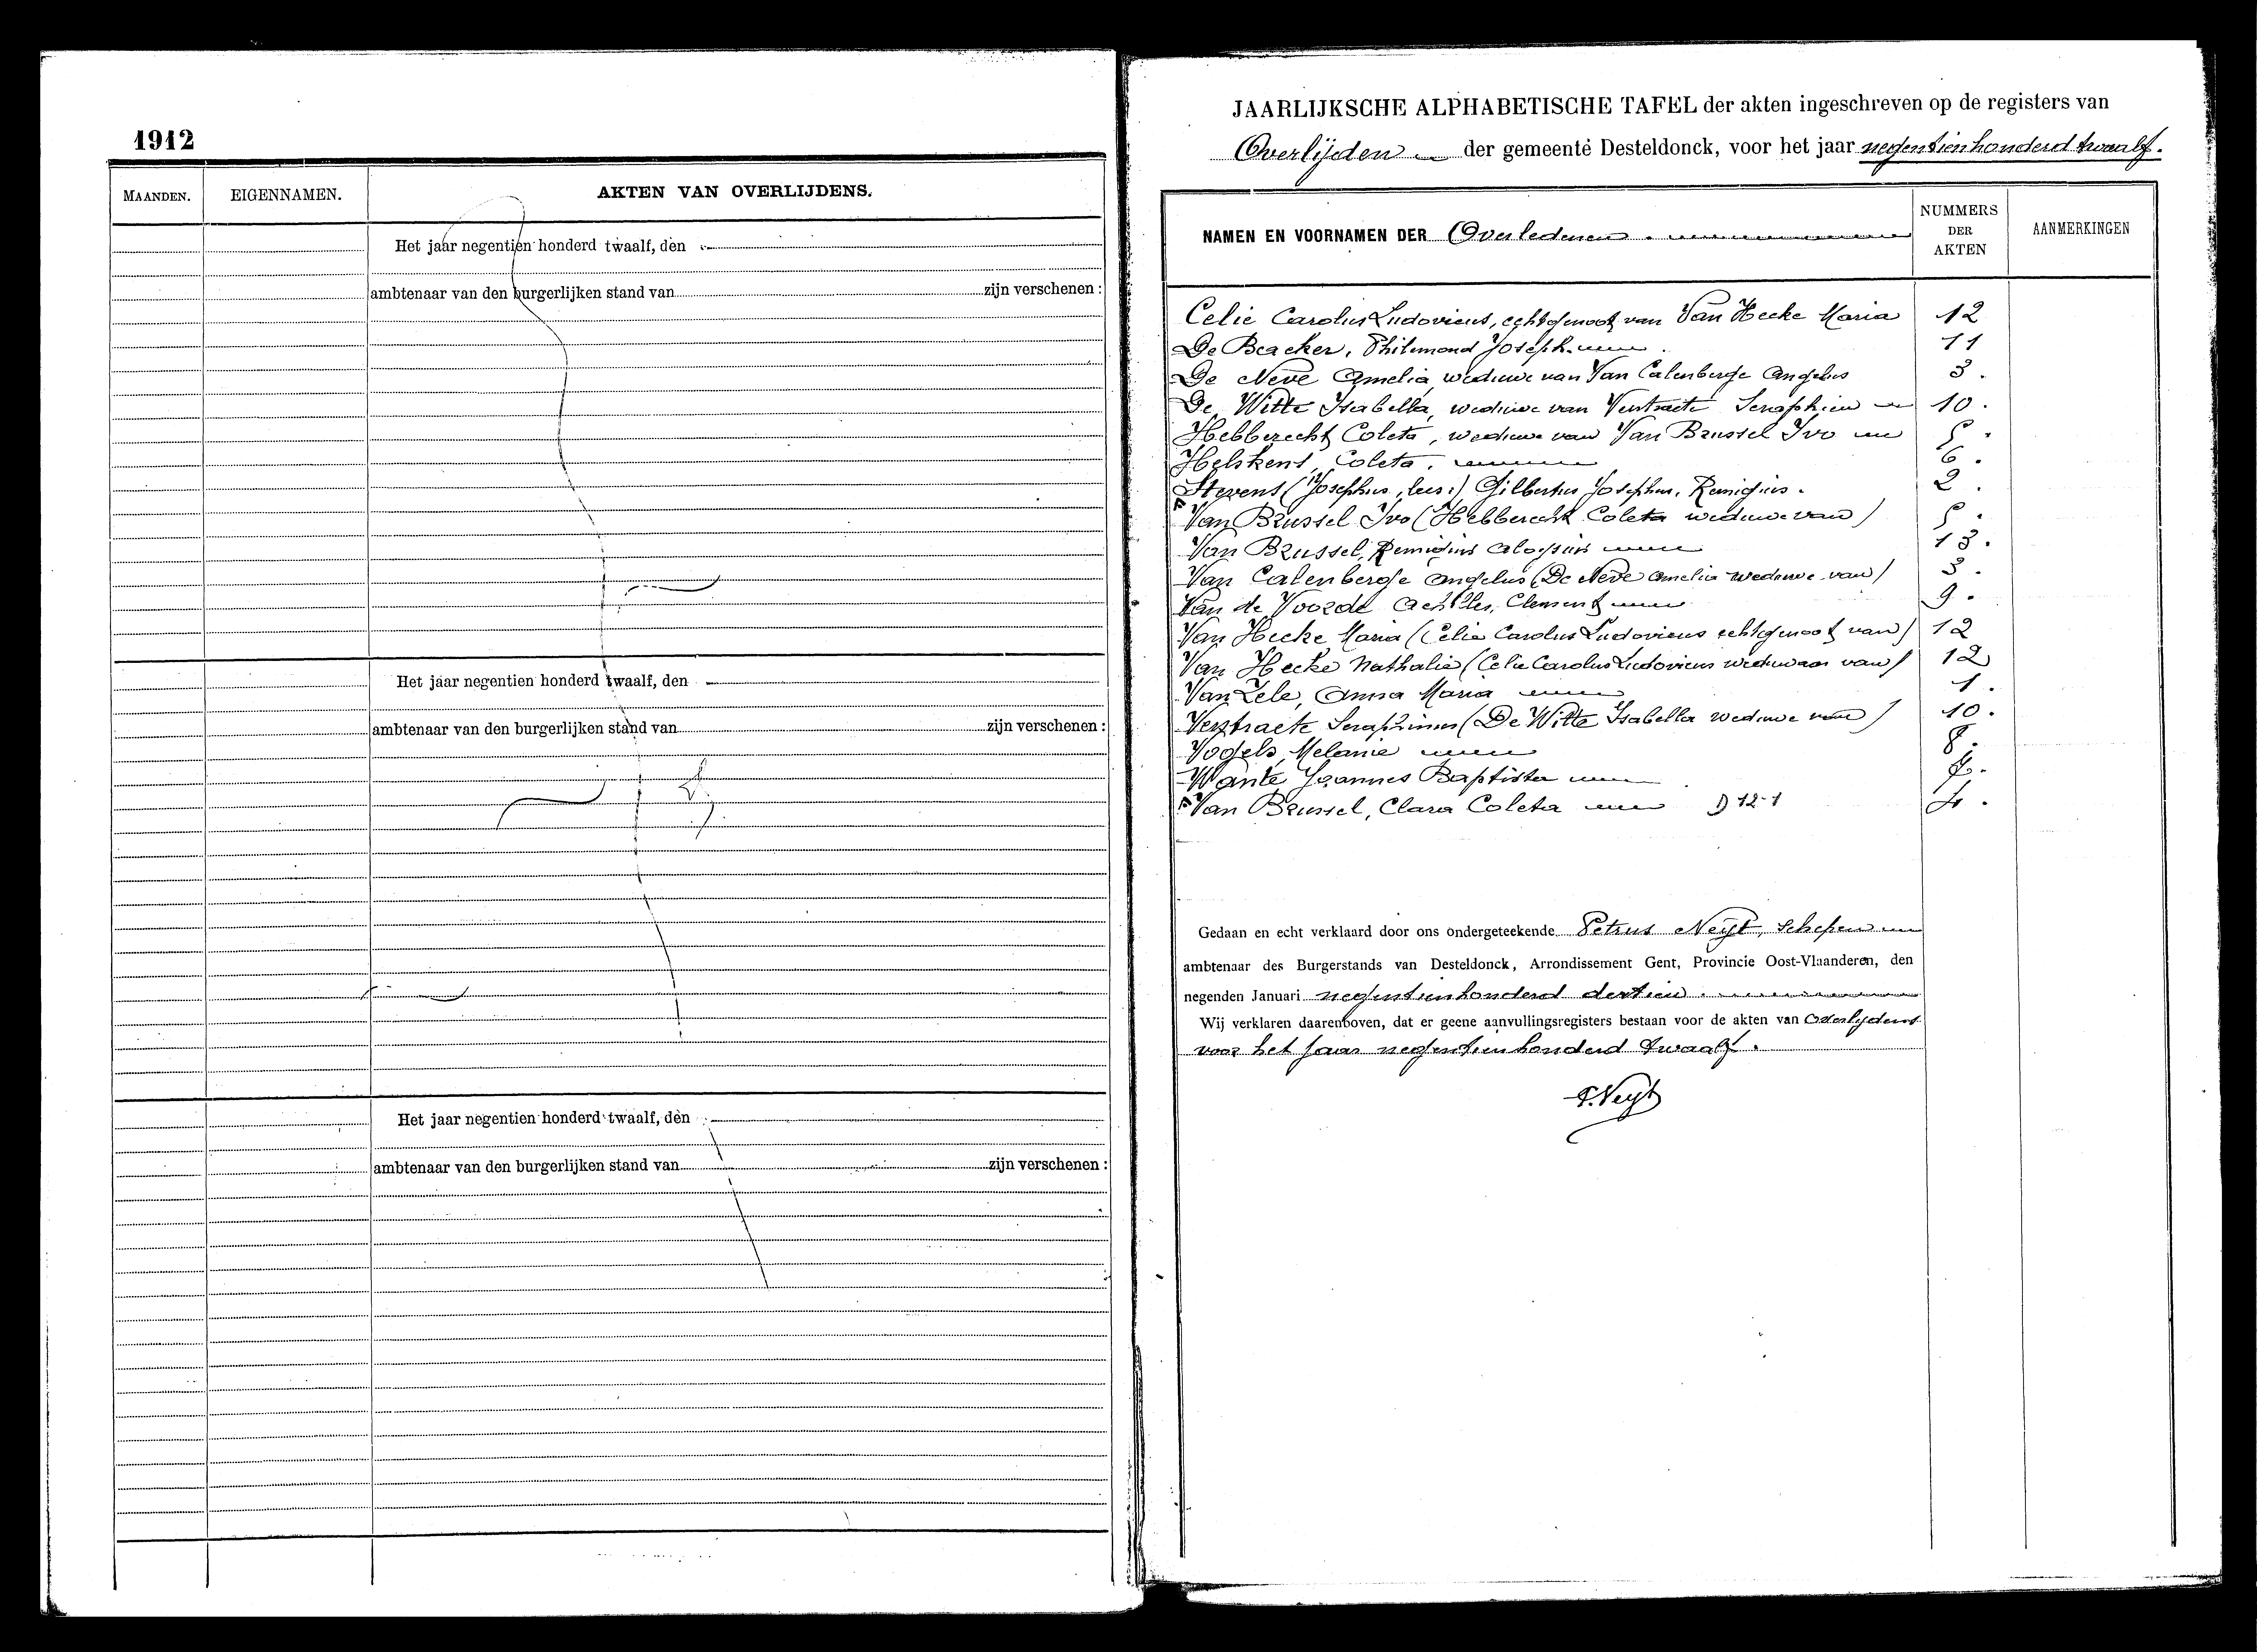 1912
MAANDEN.
EIGENNAMEN.
AKTEN VAN OVERLIJDENS.
Het jaar negentien honderd twaalf, den
ambtenaar van den burgerlijken stand van
zijn verschenen :
Het jaar negentien honderd twaalf, den
ambtenaar van den burgerlijken stand van
zijn verschenen :
Het jaar negentien honderd twaalf, den
ambtenaar van den burgerlijken stand van
zijn verschenen :
JAARLIJKSCHE ALPHABETISCHE TAFEL der akten ingeschreven op de registers van
Overlijden der gemeente Desteldonck, voor het jaar negentienhonderd twaalf.
NAMEN EN VOORNAMEN DER Overledenen.
NUMMERS
DER
AKTEN
AANMERKINGEN
Celie Carolus Ludovicus, echtgenoot van Van Hecke Maria 12
De Backer, Philemond Joseph. 11
De Neve Amelia, weduwe van Van Calenberge Angelus 3.
De Witte Isabella, weduwe van Verstraete Seraphien 10.
Hebberecht Coleta, weduwe van Van Brussel Ivo 5.
Helskens, Coleta. 6.
Stevens (Josephus, lees:) Gilbertus Josephus, Remigius. 2.
Van Brussel Ivo (Hebberecht Coleta weduwe van) 5.
Van Brussel, Remigius Aloysius 13.
Van Calenberge Angelus (De Neve Amelia weduwe van) 3.
Van de Voorde Achilles, Clement 9.
Van Hecke Maria (Celie Carolus Ludovicus echtgenoot van) 12
Van Hecke Nathalie (Celie Carolus Ludovicus weduwaar van) 12
Van Zele, Anna Maria 1.
Verstraete Seraphinus (De Witte Isabella weduwe van) 10.
Vogels, Melanie 8.
Wante Joannes Baptista
Van Brussel, Clara Coleta 12-1
Gedaan en echt verklaard door ons ondergeteekende Petrus Neyt, Schepen
ambtenaar des Burgerstands van Desteldonck, Arrondissement Gent, Provincie Oost-Vlaanderen, den
negenden Januari negentienhonderd dertien.
Wij verklaren daarenboven, dat er geene aanvullingsregisters bestaan voor de akten van Overlijdens
voor het jaar negentienhonderd twaalf.
P. Neyt